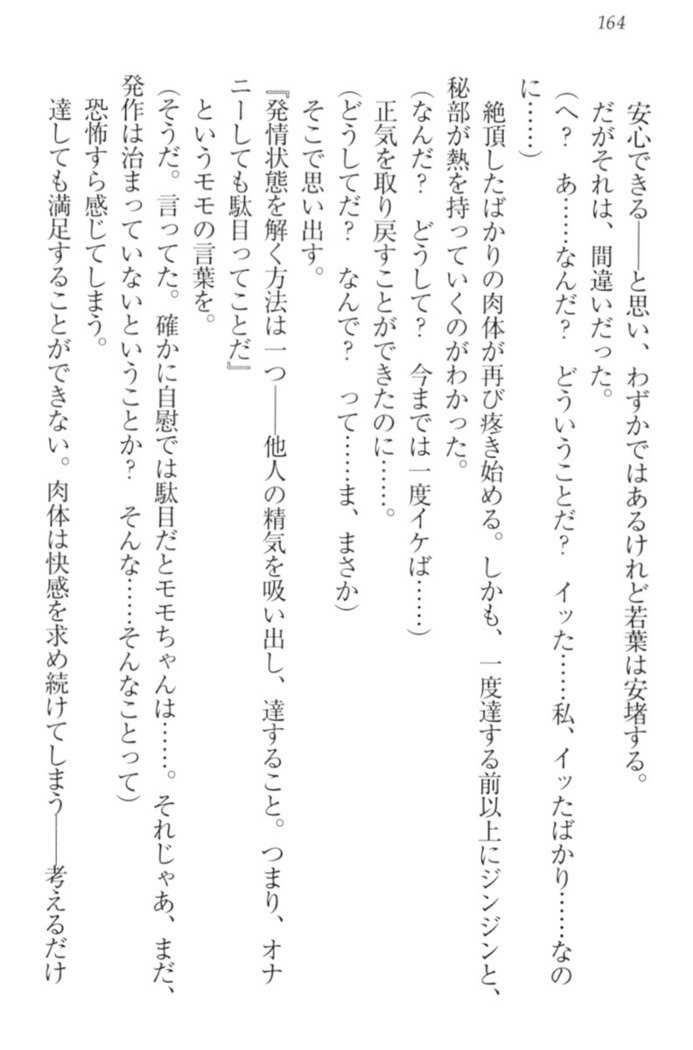 164
安心できる――と思い、わずかではあるけれど若葉は安堵する。
だがそれは、間違いだった。
(へ？　あ……なんだ？　どういうことだ？　イッた……私、イッたばかり……なの
に……)
絶頂したばかりの肉体が再び疼き始める。しかも、一度達する前以上にジンジンと、
秘部が熱を持っていくのがわかった。
(なんだ？　どうして？　今までは一度イケば……)
正気を取り戻すことができたのに……。
(どうしてだ？　なんで？　って……ま、まさか)
そこで思い出す。
『発情状態を解く方法は一つ――他人の精気を吸い出し、達すること。つまり、オナ
ニーしても駄目ってことだ』
というモモの言葉を。
(そうだ。言ってた。確かに自慰では駄目だとモモちゃんは……。それじゃあ、まだ、
発作は治まっていないということか？　そんな……そんなことって)
恐怖すら感じてしまう。
達しても満足することができない。肉体は快感を求め続けてしまう――考えるだけ